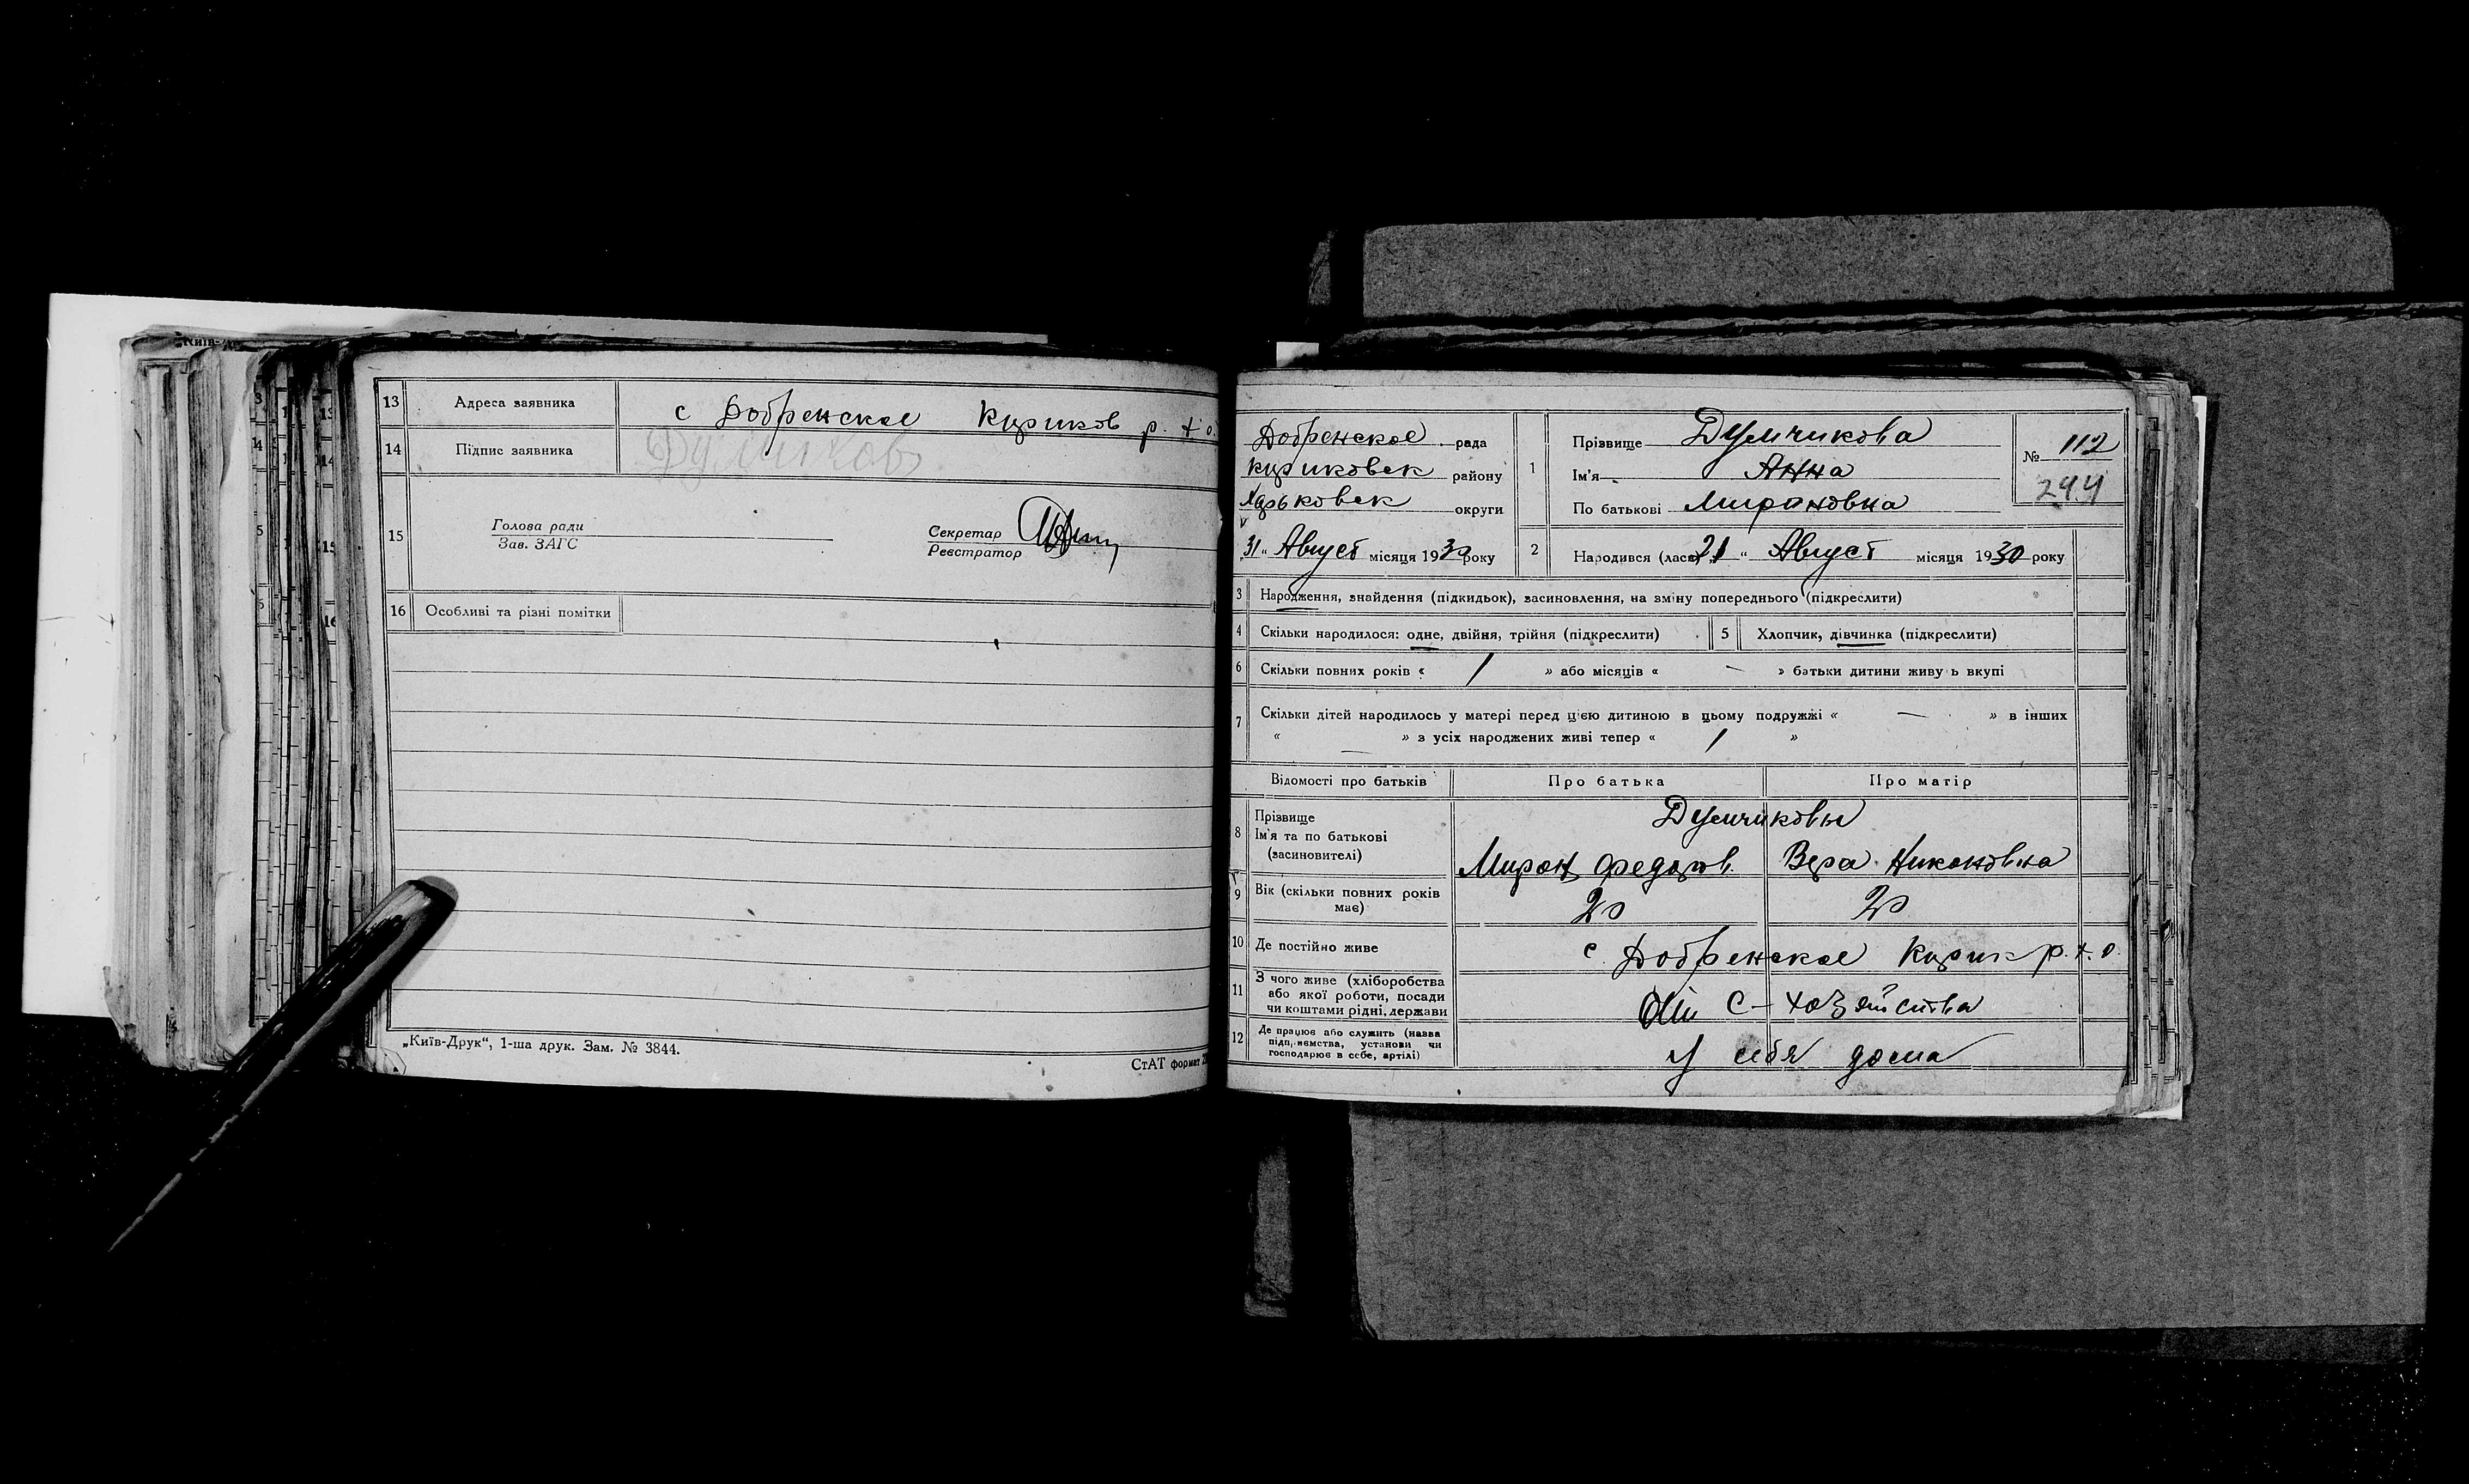 13 Адреса заявника с Добренское Куриков р. х. о.
14 Підпис заявника
15 Голова ради
Зав. ЗАГС
Секретар
Реєстратор
16 Особливі та різні помітки
„Київ-Друк“, 1-ша друк. Зам. № 3844.
СтАТ формат
Добренское рада
района району
Харьковск округи
31 „ Август місяця 1930 року
1 Прізвище Думчикова
Ім'я Анна
По батькові Мироновна
№ 112
244
2 Народився (лася) „21“ Август місяця 1930 року
3 Народження, знайдення (підкидьок), засиновлення, на зміну попереднього (підкреслити)
4 Скільки народилося: одне, двійня, трійня (підкреслити) 5 Хлопчик, дівчинка (підкреслити)
6 Скільки повних років « 1 » або місяців « — » батьки дитини живу ь вкупі
7 Скільки дітей народилось у матері перед цією дитиною в цьому подружжі « — » в інших
« — » з усіх народжених живі тепер « 1 »
Відомості про батьків Про батька Про матір
8 Прізвище Думчиковы
Ім'я та по батькові
(засиновителі) Мирон Федоров. Вера Никоновна
9 Вік (скільки повних років
має) 20 20
10 Де постійно живе с. Добренское Курик р. х. о.
11 З чого живе (хліборобства
або якої роботи, посади
чи коштами рідні, держави От с-хозяйства
12 Де працює або служить (назва
підприємства, установи чи
господарює в себе, артілі) У себя дома